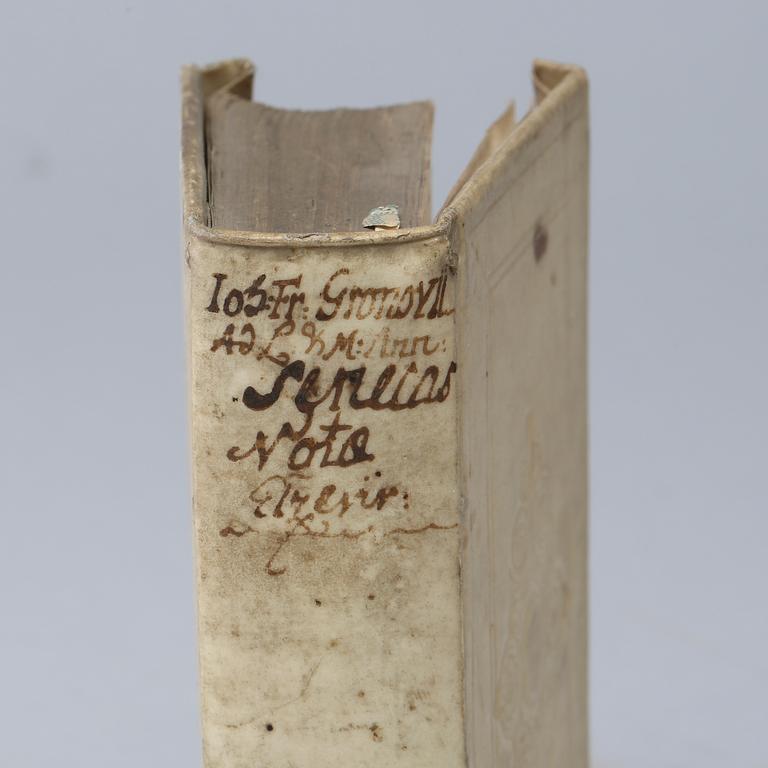 Ioh: Fr: Gronovii
Ad L. & M: Ann:
Senecas
Notæ
Elzevir: